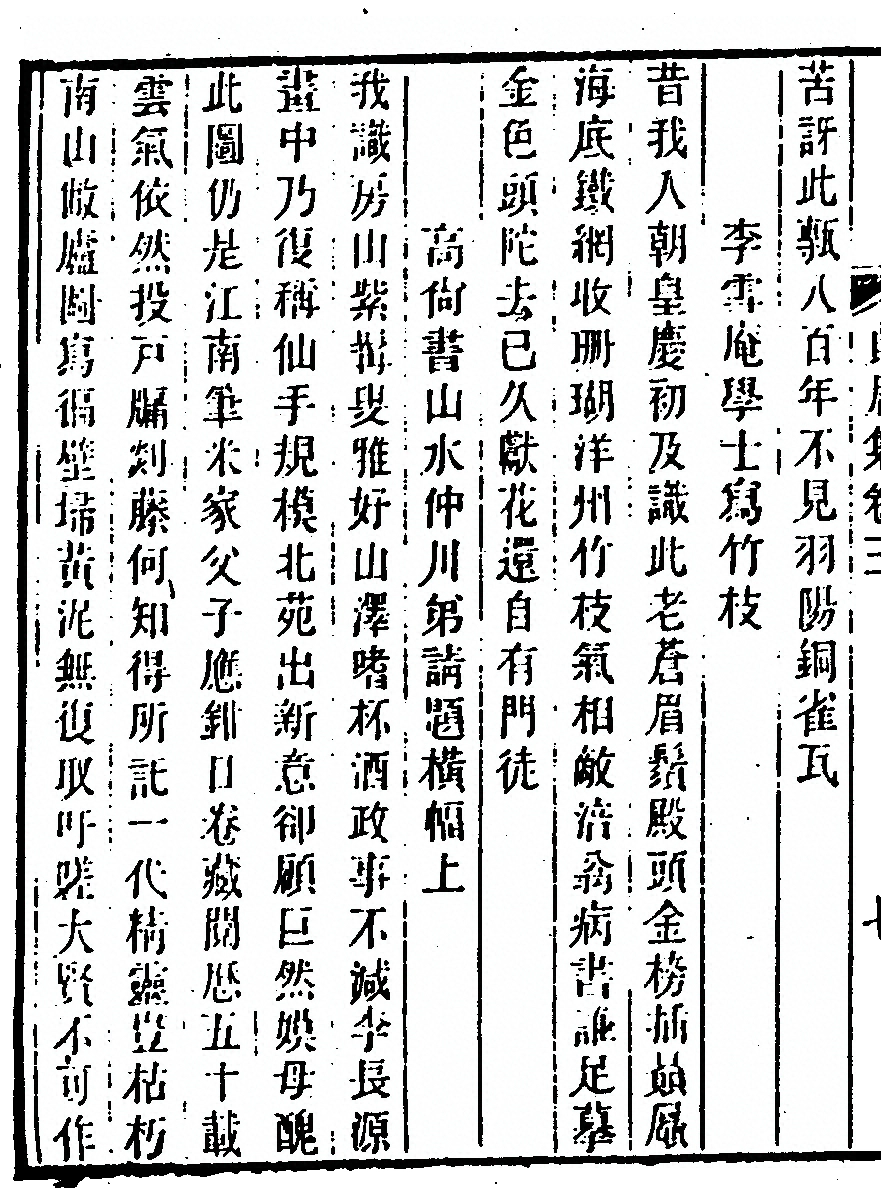 苦訝此甎八百年不見羽陽銅雀瓦
李雪庵學士寫竹枝
昔我入朝皇慶初及識此老蒼眉鬚殿頭金榜插
海底鐵網收珊瑚洋州竹枝氣相敵涪翁病書誰足摹
金色頭陀去已久獻花還自有門徒
高尙書山水仲川弟請題橫幅上
我識房山紫髯叟雅好山澤嗜杯酒政事不減李長源
畫中乃復稱仙手規模北苑出新意卻顧巨然嫫母醜
此圖仍是江南筆米家父子應卷藏閱歷五十載
雲氣依然投戸牖剡藤何知得所託一代精靈豈枯朽
南山倣廬圖寫徧壁埽黃泥無復取吁嗟大賢不可作